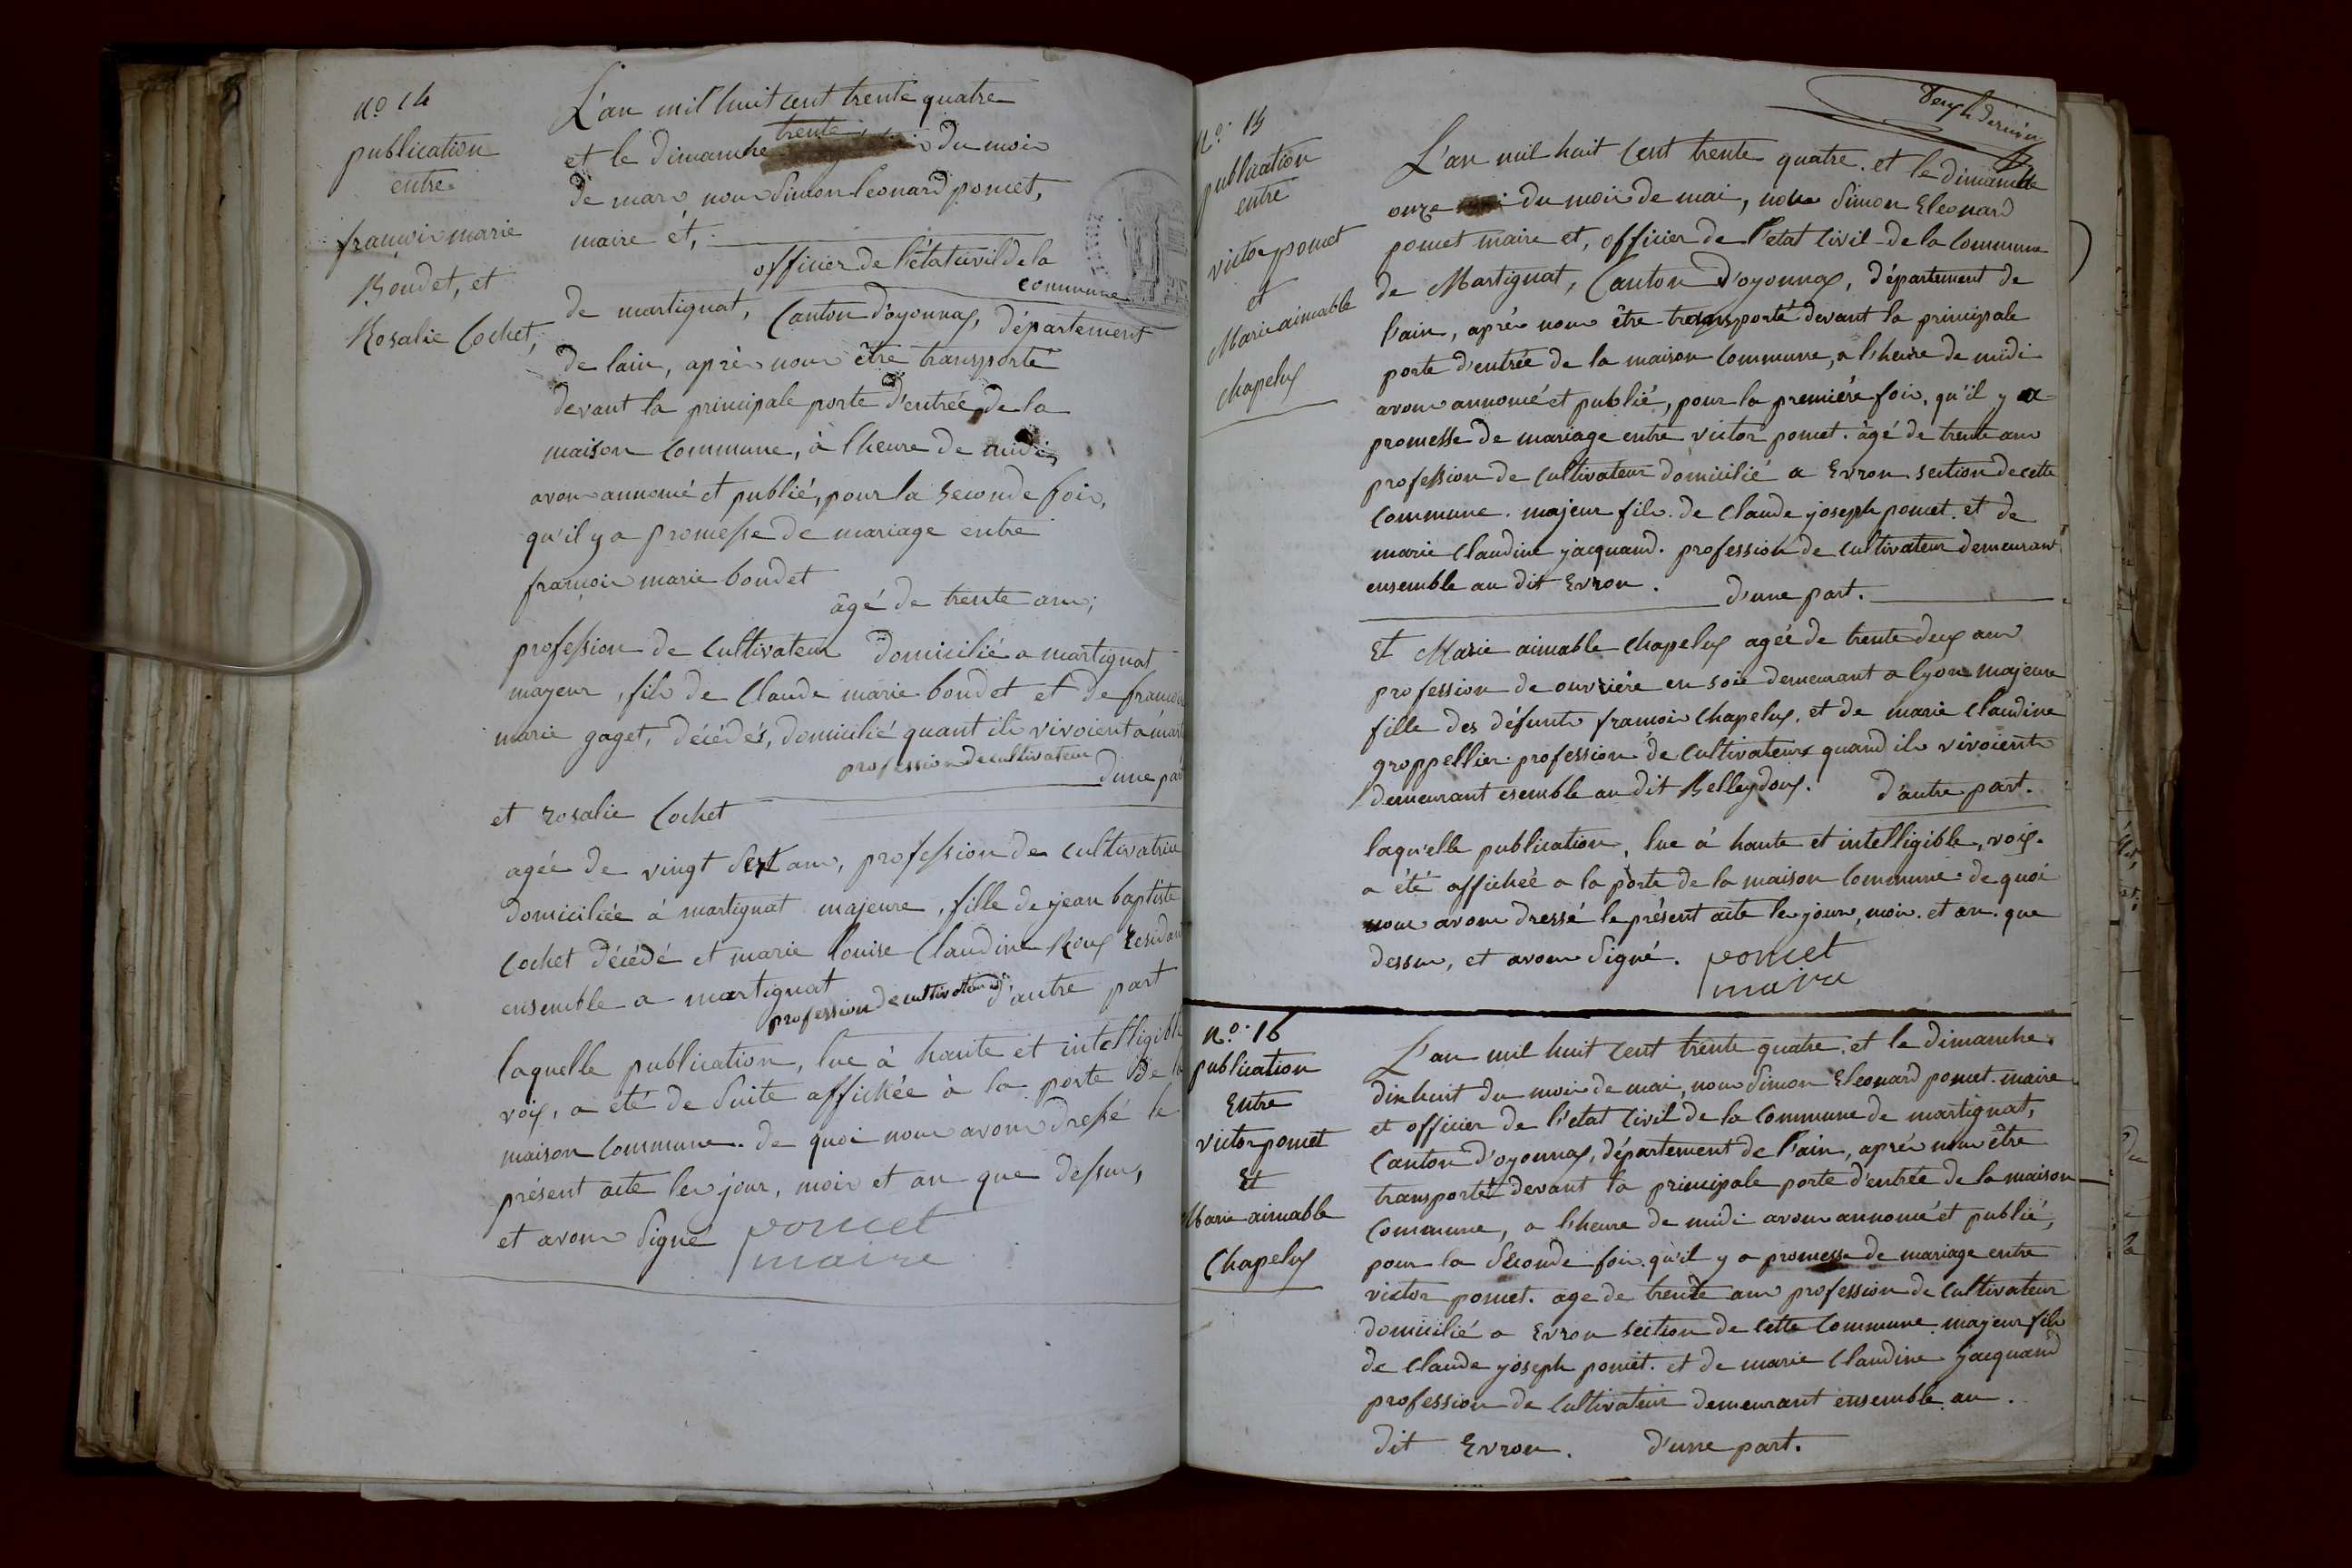 n.o 14
publication
entre
françois marie
Boudet, et
Rosalie Cochet,
L'an mil huit cent trente quatre
et le dimanche trente du mois
de mars nous Simon leonard poncet,
maire et,
officier de l'état civil de la
commune
de martignat, Canton d'oyonnax, département
de lain, après nous être transporté
devant la principale porte d'entrée de la
maison commune, à l'heure de midi
avons annoncé et publié, pour la seconde fois,
qu'il y a promesse de mariage entre
françois marie boudet
âgé de trente ans;
profession de cultivateur domicilié a martignat
mayeur, fils de Claude marie boudet et de
marie gaget, décédés, domicilié quant ils vivoient a
profession de cultivateur
d'une part
et rosalie Cochet
agée de vingt sept ans, profession de cultivatrice
domiciliée à martignat majeure, fille de jean baptiste
Cochet décédé et marie louise Claudine Roux residant
ensemble a martignat
profession de cultivateurs d'autre part
laquelle publication, lue à haute et intelligible
voix, a été de suite affichée à la porte de la
maison commune. de quoi nous avons dressé le
présent acte les jour, mois et an que dessus,
et avons signé poncet
maire
Deux & dernier
N.o 15
publication
entre
victor poncet
et
Marie aimable
chapelux
L'an mil huit cent trente quatre. et le dimanche
onze du mois de mai, nous Simon Eleonard
poncet maire et, officier de l'etat civil de la commune
de Martignat, Canton d'oyonnax, département de
l'ain, après nous être transporté devant la principale
porte d'entrée de la maison commune, a l'heure de midi
avons annoncé et publié, pour la première fois, qu'il y a
promesse de mariage entre victor poncet. âgé de trente ans
profession de cultivateur domicilié a Evron section de cette
commune. majeur fils de claude joseph poncet. et de
marie claudine jacquand. profession de cultivateur demeurant
ensemble au dit Evron. d'une part.
Et Marie aimable chapelux agée de trente deux ans
profession de ouvrière en soie demeurant a lyon majeure
fille des défunts françois chapelux. et de marie claudine
groppellier profession de cultivateurs quand ils vivoients
demeurant esemble au dit Belleydoux. d'autre part.
laqu'elle publication, lue à haute et intelligible, voix.
a été affichée a la porte de la maison commune. de quoi
nous avons dressé le présent acte les jour, mois. et an. que
dessus, et avons signé. poncet
maire
N.o 16
publication
Entre
victor poncet
Et
Marie aimable
Chapelux
L'an mil huit cent trente quatre. et le dimanche.
dix huit du mois de mai, nous Simon Eleonard poncet. maire
et officier de l'etat civil de la commune de martignat,
Canton d'oyonnax, département de l'ain, après nous être
transporté devant la principale porte d'entrée de la maison
commune, a l'heure de midi avons annoncé et publié,
pour la seconde fois. qu'il y a promesse de mariage entre
victor poncet. age de trente ans profession de cultivateur
domicilié a Evron section de cette commune. majeur fils
de claude joseph poncet. et de marie Claudine jacquand
profession de cultivateur demeurant ensemble au.
dit Evron. d'une part.